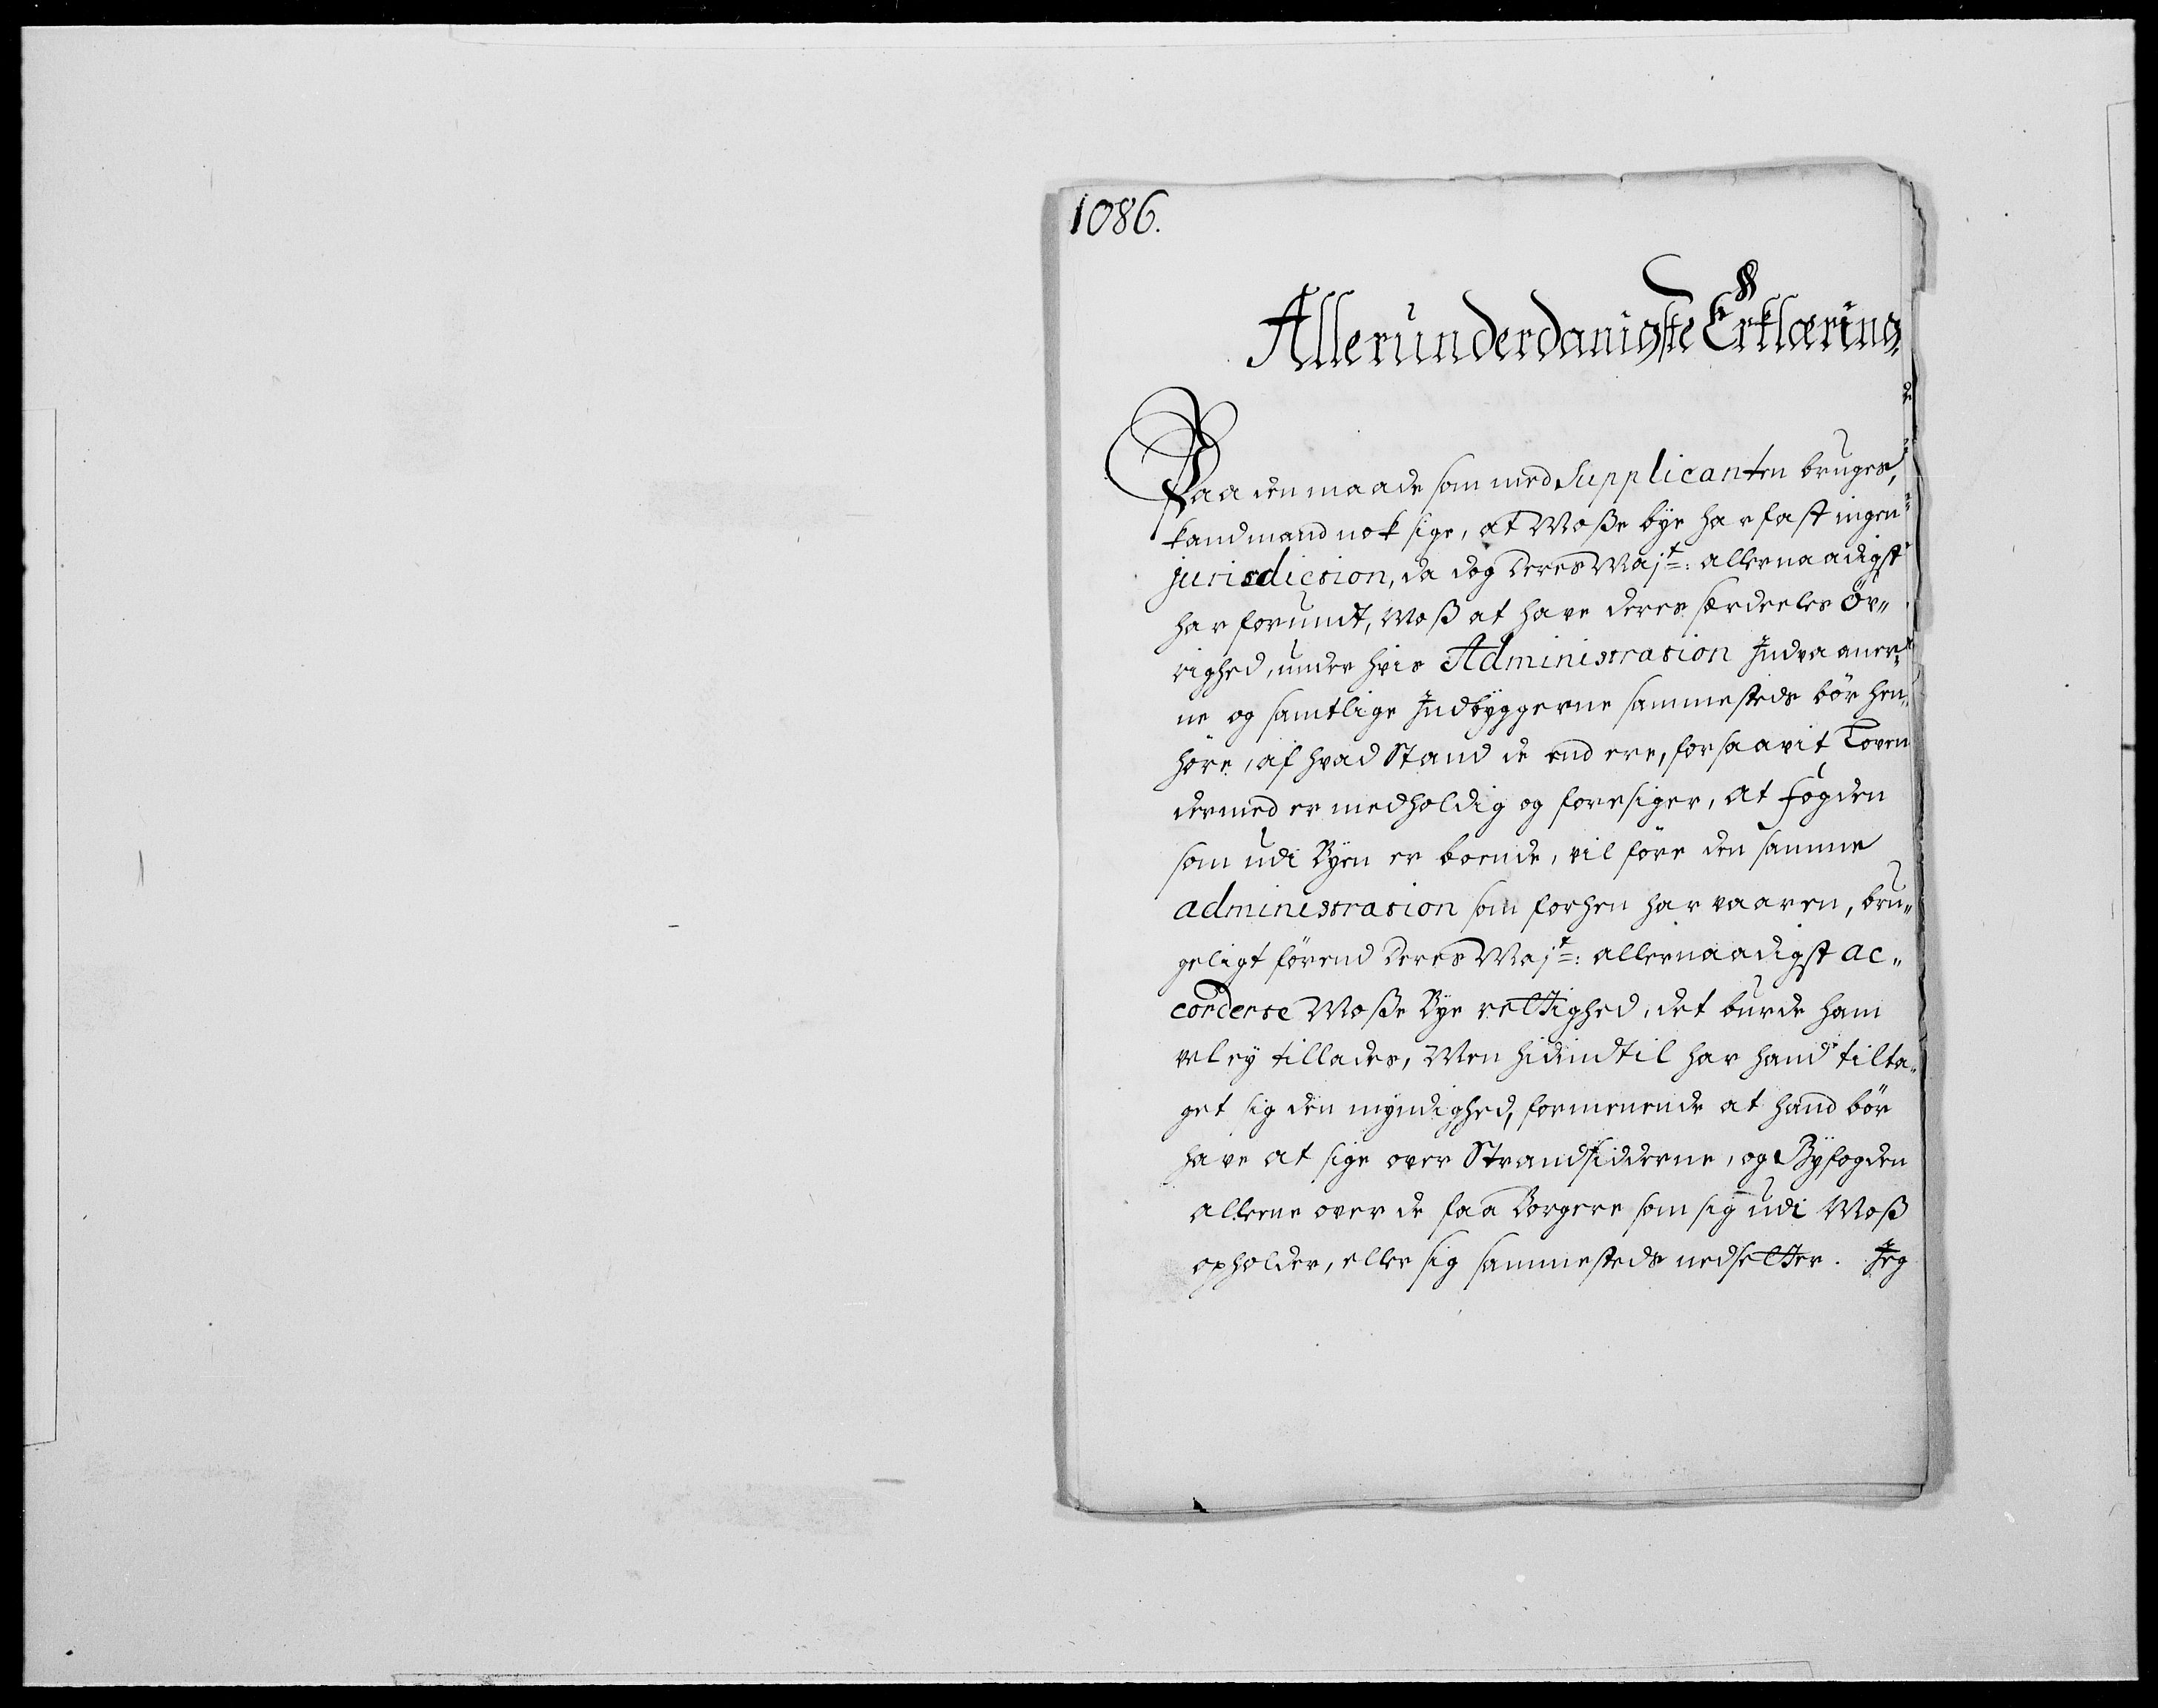 1086.
Allerunderdanigste Erklæring
Paa den maade som med Supplicanten bruges,
kand mand nok sige, at Moße bye har fast ingen
jurisdiction, da dog Deres Majt: allernaadigst
har forundt, Moß at have deres særdeeles Öv„
righed, under hvis Administration Indvaaner„
ne og samtlige Indbyggerne sammesteds bör hen„
höre, af hvad Stand de end ere, forsaavit Loven
dermed er medholdig og foresiger, at fogden
som udi Byen er boende, vil före den samme
administration som forhen har vaaren, bru„
geligt förend Deres Majt: allernaadigst ac„
corderte Moße Bye rettighed, det burde ham
vel ey tillades, Men hidindtil har hand tilta„
get sig den myndighed, formenende at hand bör
have at sige over Strandsidderne, og Byfogden
alleene over de faa Borgere som sig udi Moß
opholder, eller sig sammesteds nedsetter. Jeg